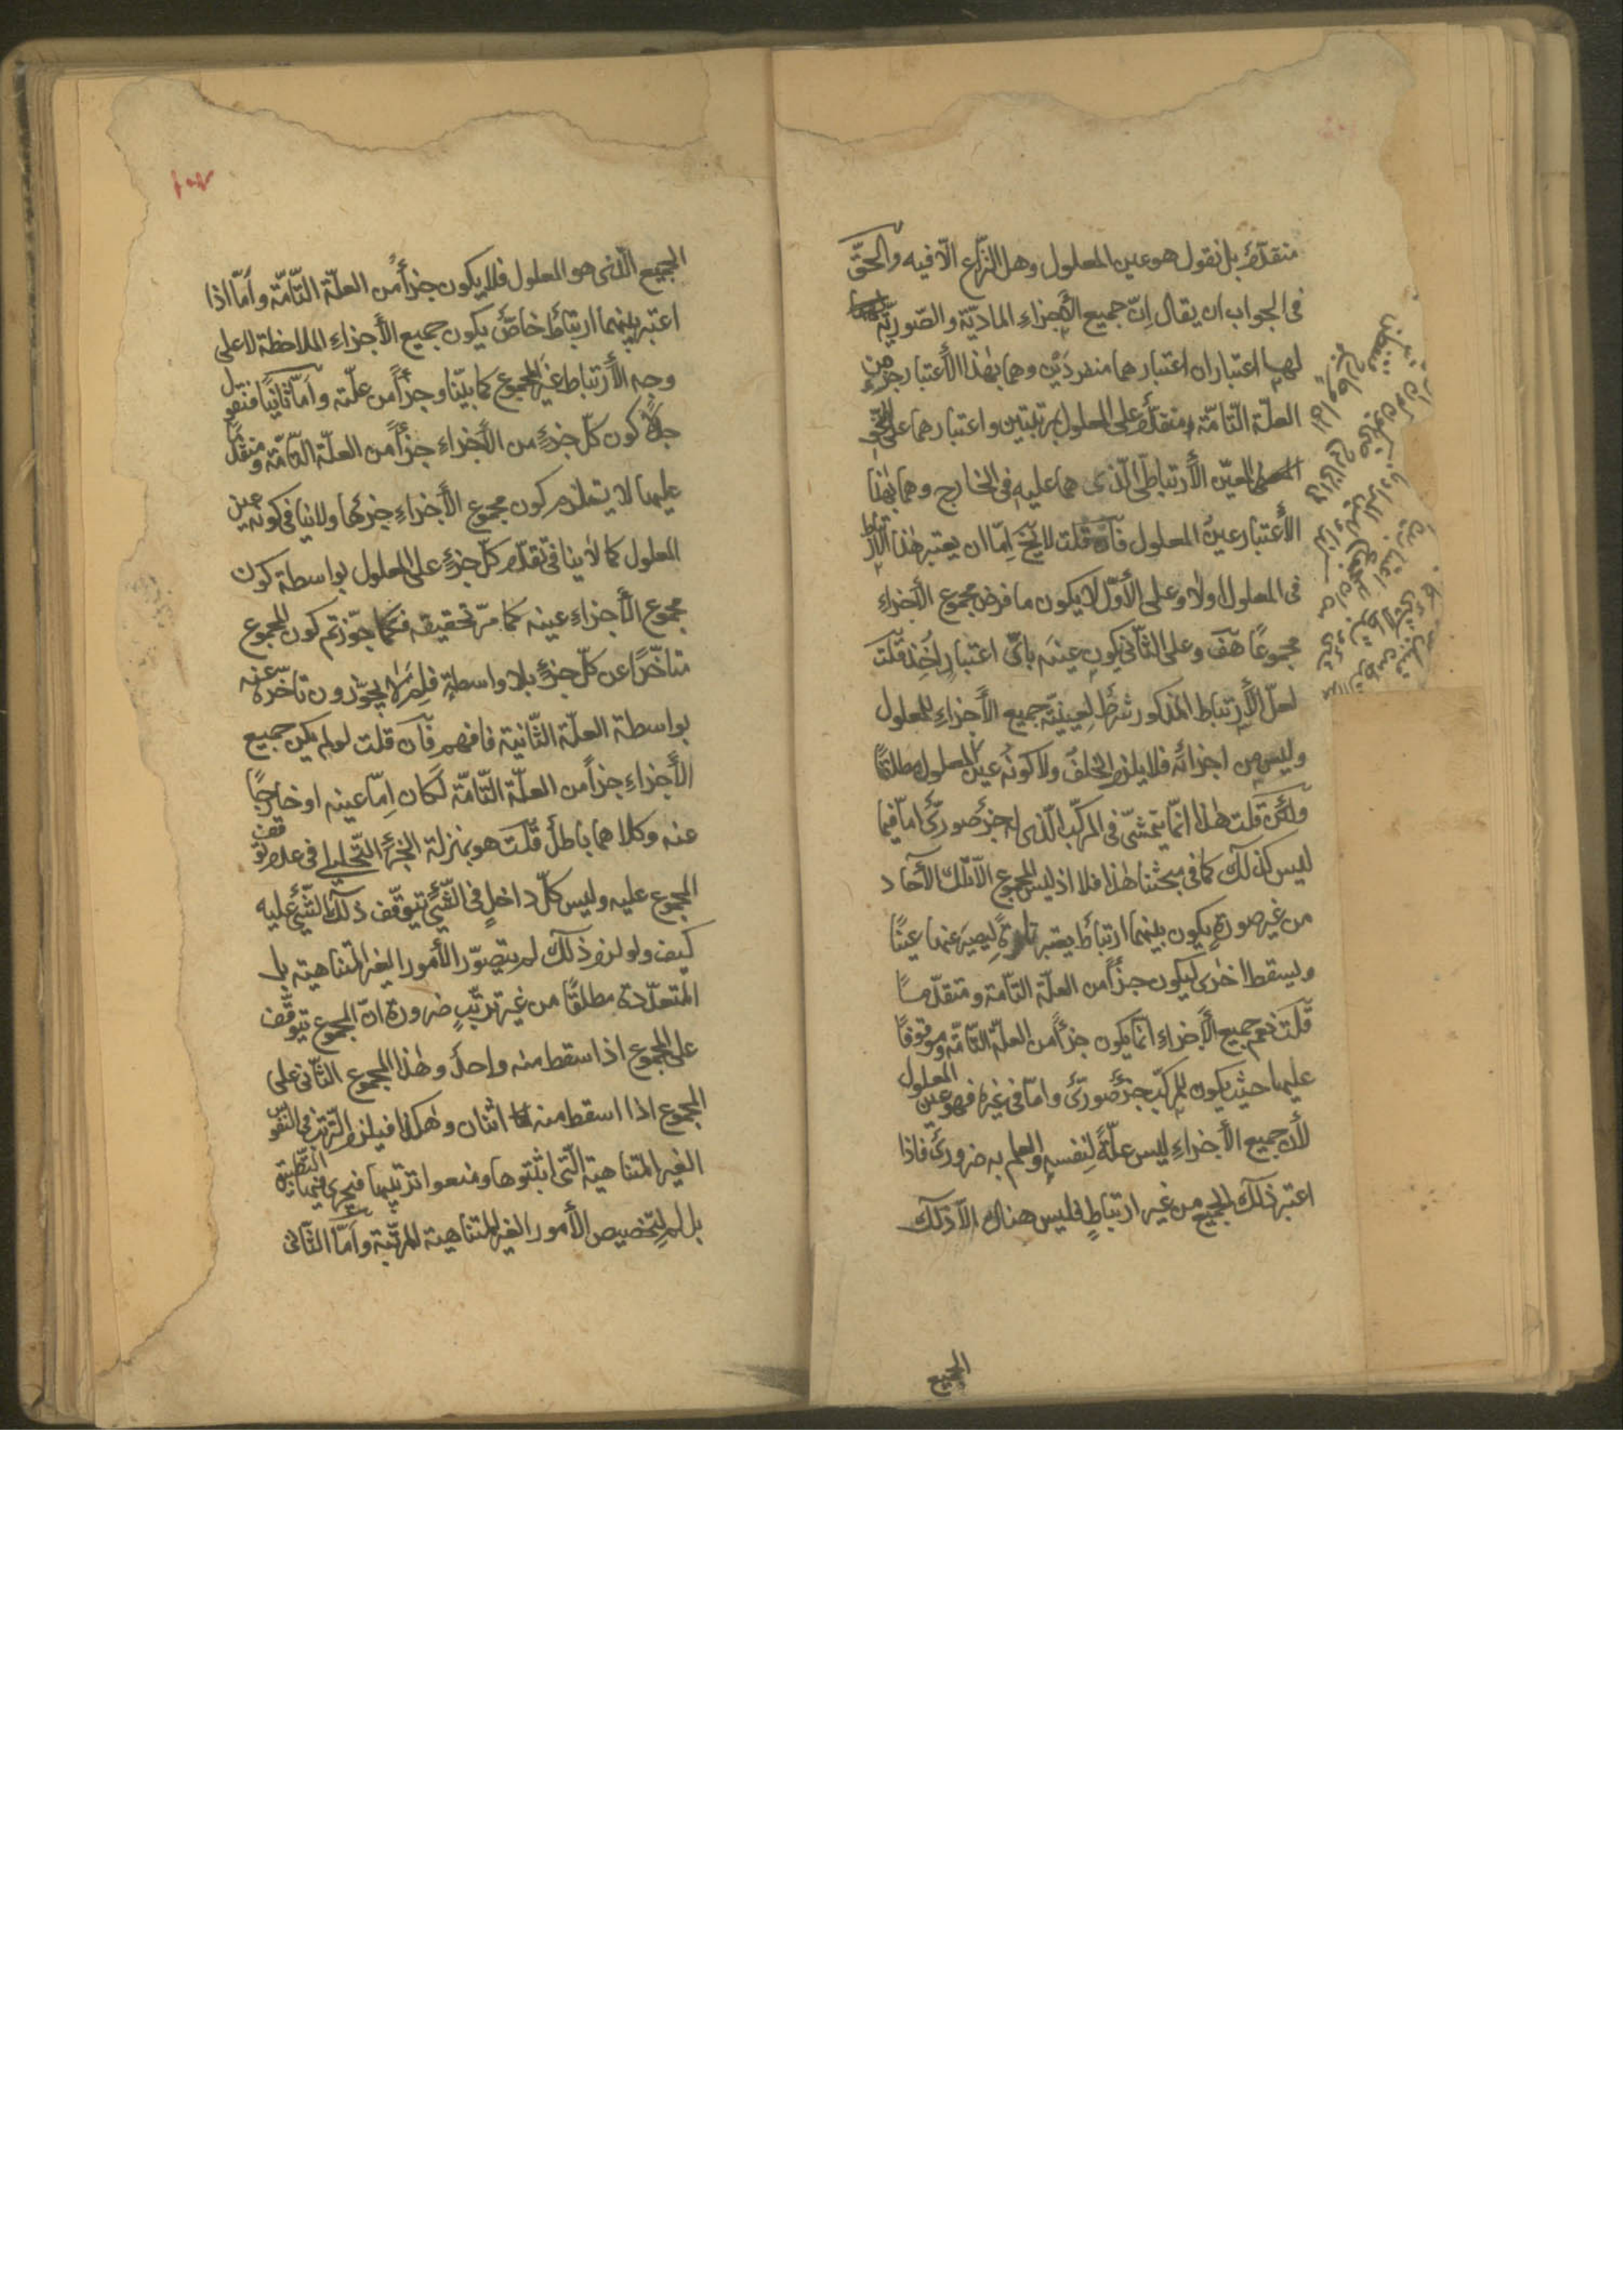 متقدّمٌ بل نقول هو عين المعلول وهل النّزاع الّا فيه والحقّ
فى الجواب ان يقال اِنّ جميع الأجزاءِ الماديّة والصّوريّة
لها اعتباران اعتبارهما منفردَيْن وهما بهٰذا الأعتبار جزءٌ من
العلّة التّامّة ومتقدّمٌ على المعلول بمرتبتين واعتبارهما على النّحو
المعيّن الأرتباطىّ الّذى هما عليه فى الخارج وهما بهٰذا
الأعتبار عينُ المعلول فاِن قلت لا يخ اِمّا ان يعتبر هٰذا الارتباط
فى المعلول اولا وعلى الأوّل لا يكون ما فرض مجموع الأجزاءِ
مجموعًا هف وعلى الثّانى يكون عينَه باىّ اعتبارٍ اُخِذ قلت
لعلّ الأرتباط المذكور شرطٌ لِعينيّة جميع الأجزاءِ للمعلول
وليس من اجزائه فلا يلزم الخلفُ ولا كونُه عينَ المعلول مطلقًا
ولئن قلت هٰذا انّما يتمشّى فى المركّب الّذى له جزءٌ صورىٌّ امّا فيما
ليس كذلك كما فى مبحثنا هٰذا فلا اذ ليس المجموع الّا تلك الآحاد
من غير صورةٍ يكون بينهما ارتباطٌ يعتبر تارةً ليصير عنها عينًا
ويسقط اخرٰى ليكون جزأً من العلّة التّامّة ومتقدّمًا
قلت نعم جميع الأجزاءِ انّما يكون جزأً من العلّة التّامّة وموقوفًا
عليها حيث يكون للمركّب جزءٌ صورىٌّ وامّا فى غيره فهو عين المعلول
لأنّ جميع الأجزاءِ ليس علّةً لِنفسه والعلم به ضرورىٌّ فاذا
اعتبر ذلك الجميع من غير ارتباطٍ فليس هناك الّا ذلك
الجميع
١٠٧
الجميع الّذى هو المعلول فلا يكون جزأً من العلّة التّامّة وامّا اذا
اعتبر بينهما ارتباطٌ خاصٌّ يكون جميع الأجزاءِ الملاحظة لا على
وجه الأرتباط غيرَ المجموع كما بيّنّا وجزأً من علّته وامّا ثانيًا فنقول
كون كلّ جزءٍ من الأجزاءِ جزأً من العلّة التّامّة ومتقدّمًا
عليها لا يستلزم كون مجموع الأجزاءِ جزئها ولا ينافى كونه عين
المعلول كما لا ينافى تقدّم كلّ جزءٍ على المعلول بواسطة كون
مجموع الأجزاءِ عينه كما مرّ تحقيقه فكما جوّزتم كون المجموع
متاخّرًا عن كلّ جزءٍ بلا واسطةٍ فلِمَ لا يجوّزون تاخّره عنه
بواسطة العلّة الثّانية فافهم فان قلت لو لم يكن جميع
الأجزاءِ جزأً من العلّة التّامّة لكان اِمّا عينه او خارجًا
عنه وكلاهما باطلٌ قلت هو بمنزلة الجزءِ التّحليلى فى عدم توقف
المجموع عليه وليس كلّ داخلٍ فى الشّئ يتوقّف ذلك الشّئ عليه
كيف ولو لزم ذلك لم يتصوّر الأمور الغير المتناهية بل
المتعدّدة مطلقًا من غير ترتّبٍ ضرورة انّ المجموع يتوقّف
على المجموع اذا سقط منه واحدٌ وهٰذا المجموع الثّانى على
المجموع اذا اسقط منه اثنان وهٰكذا فيلزم التّرتّب فى النّفوس
الغير المتناهية الّتى اثبتوها ومنعوا ترتيبها فيجرى فيها التّطبيق
بل لم لتخصيص الأمور الغير المتناهية المرتّبة وامّا الثّانى